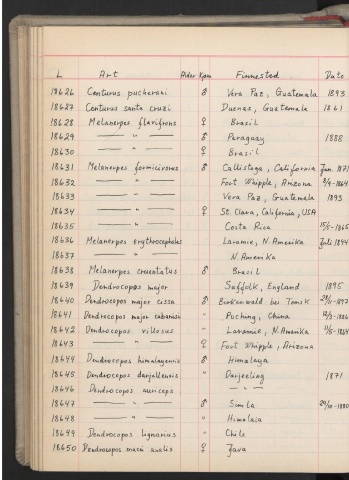 L Art Alder Kjøn Finnested Dato
18626 Centurus pucherani ♂ Vera Paz, Guatemala 1893
18627 Centurus santa cruzi Duenas, Guatemala 1861
18628 Melanerpes flavifrons ♀ Brasil
18629 —— " —— ♂ Paraguay 1888
18630 —— " —— ♀ Brasil
18631 Melanerpes formicivorus ♂ Callistoga, California Jan. 1871
18632 —— " —— Fort Whipple, Arizona 1864
18633 —— " —— Vera Paz, Guatemala 1893
18634 —— " —— ♀ St. Clara, California, USA
18635 —— " —— Costa Rica 15/5-1865
18636 Melanerpes erythrocephalus Laramie, N. Amerika Juli 1894
18637 —— " —— N. Amerika
18638 Melanerpes cruentatus ♂ Brasil
18639 Dendrocopos major Suffolk, England 1895
18640 Dendrocopos major cissa ♂ Birkenwald bei Tomsk 29/11-1897
18641 Dendrocopos major cabanisi " Puching, China 1886
18642 Dendrocopos villosus " Laramie, N. Amerika
18643 —— " —— ♀ Fort Whipple, Arizona
18644 Dendrocopos himalayensis ♂ Himalaya
18645 Dendrocopos darjellensis " Darjeeling 1871
18646 Dendrocopos auriceps — " —
18647 —— " —— ♂ Simla 29/10-1880
18648 —— " —— " Himalaia
18649 Dendrocopos lignarius " Chile
18650 Dendrocopos macei analis ♀ Java